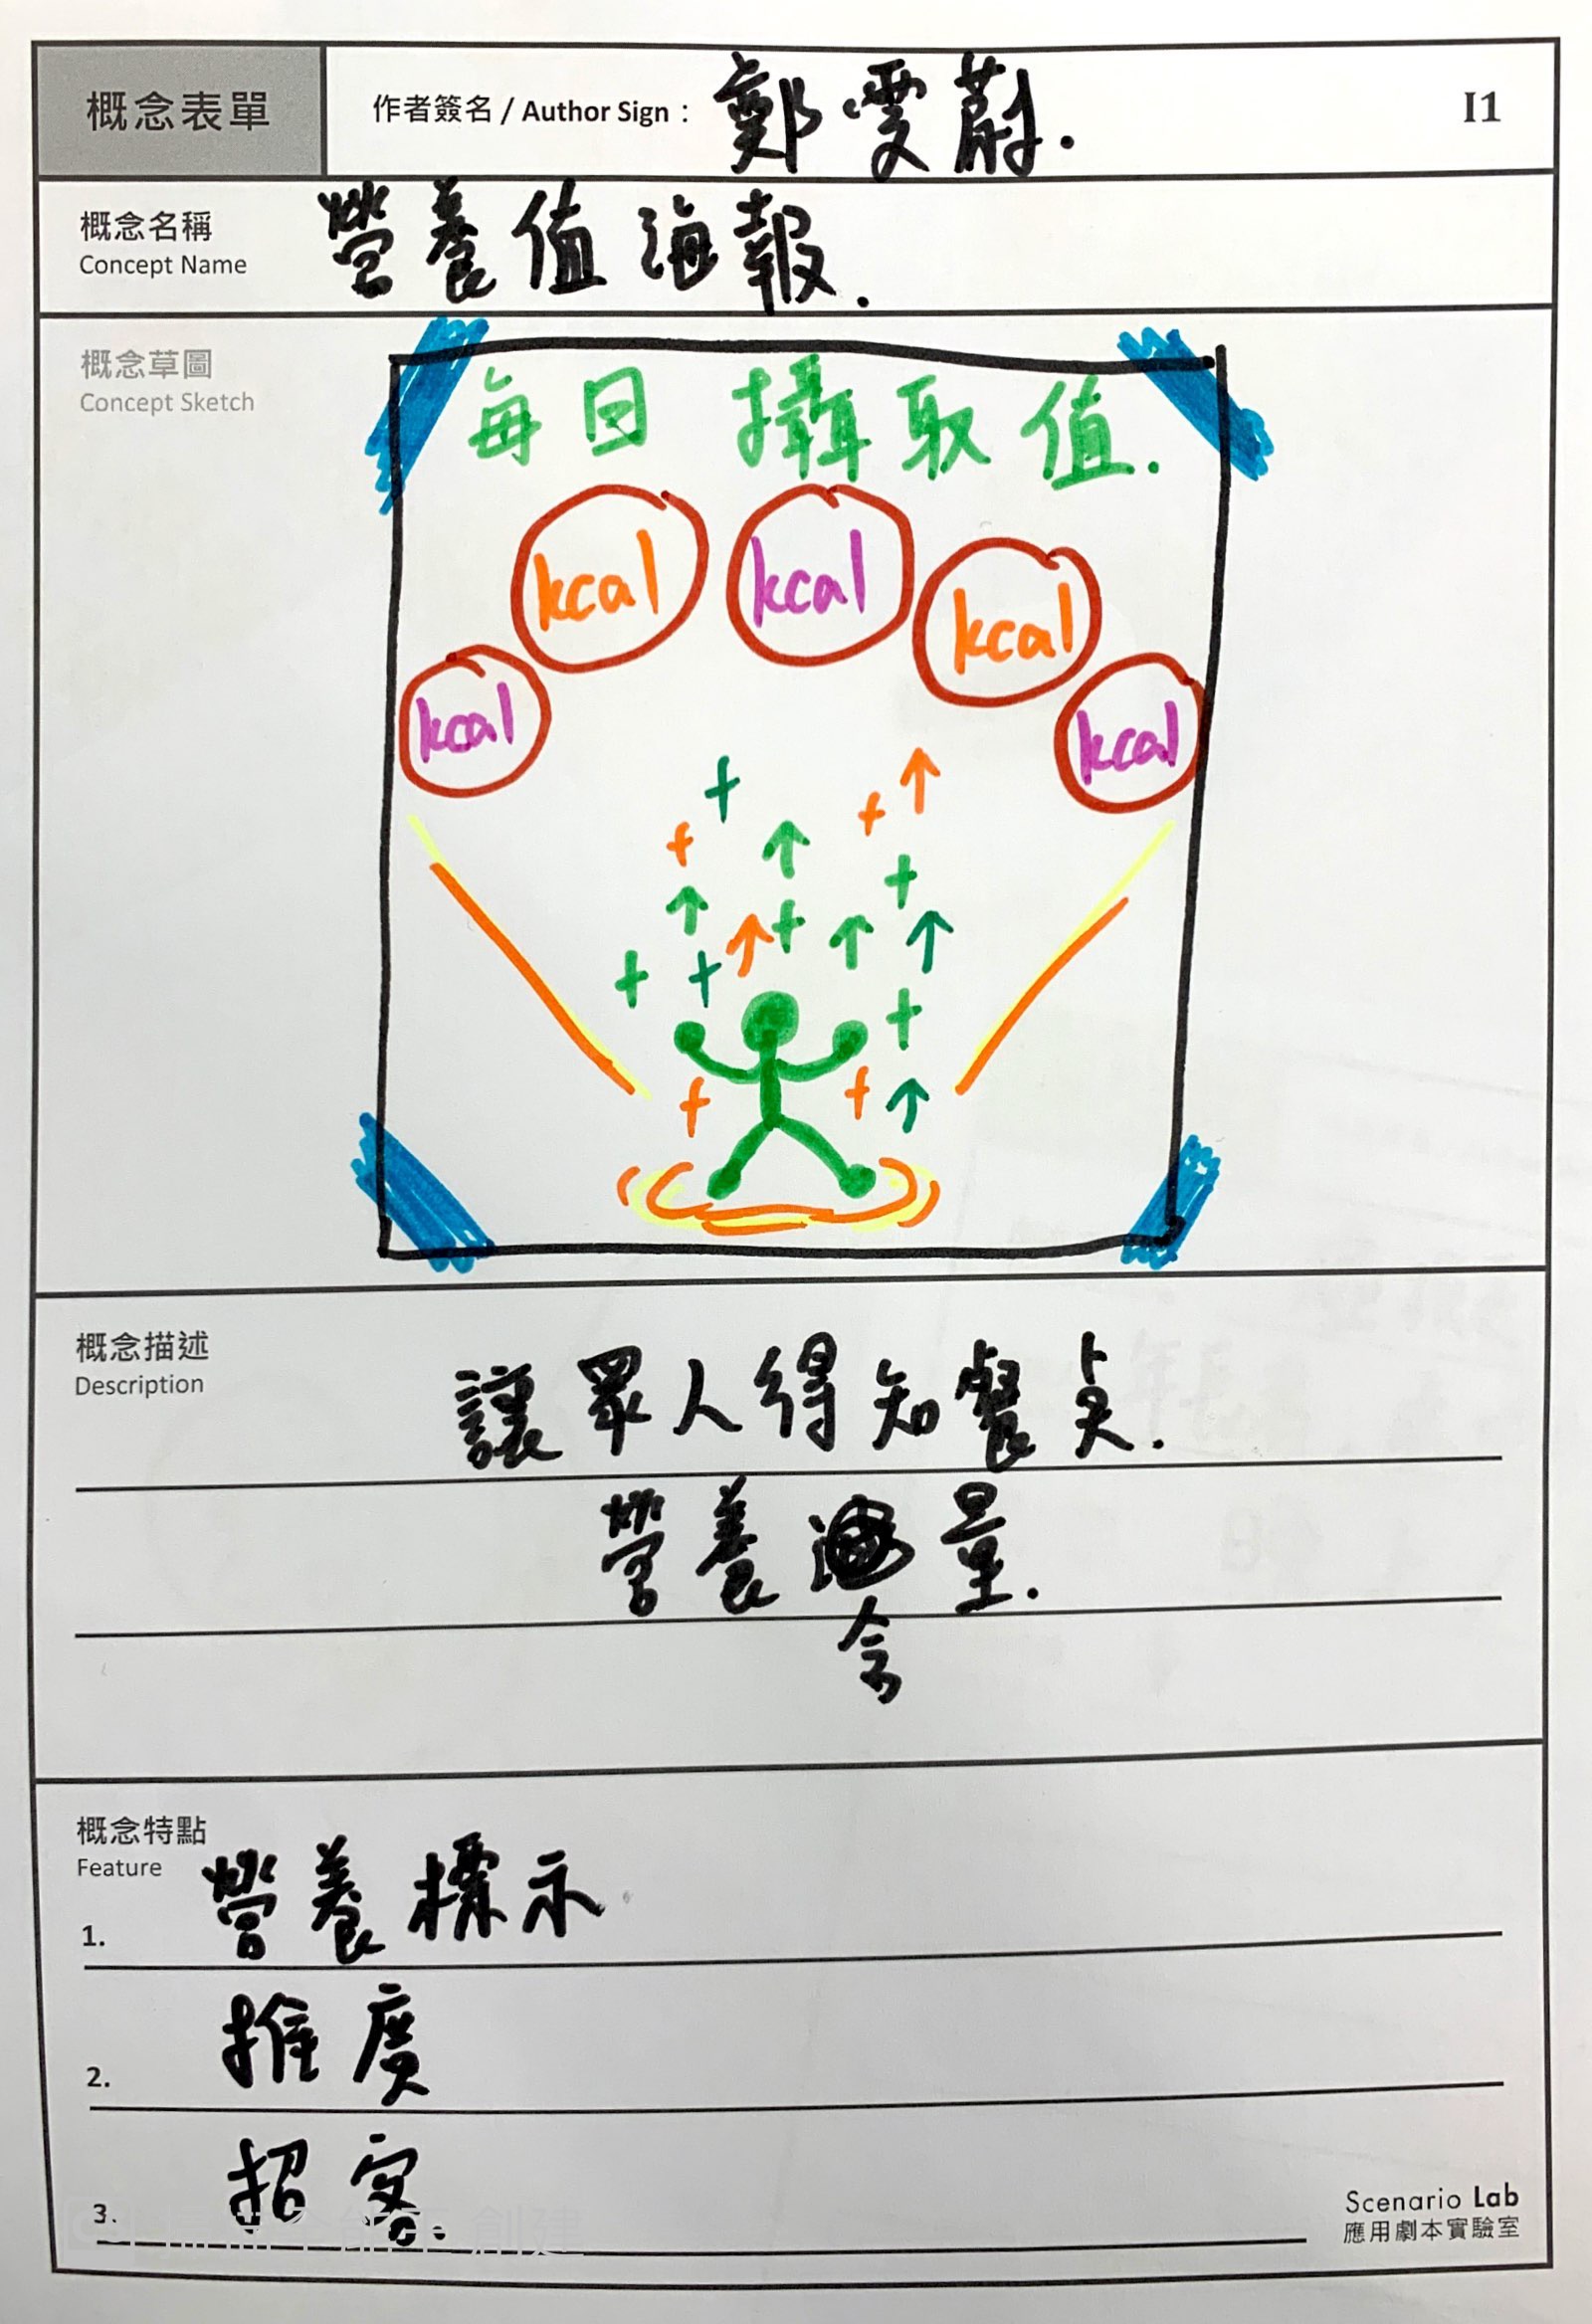 概念表單
作者簽名 / Author Sign： 鄭雯蔚.
I1
概念名稱
Concept Name
營養值海報.
概念草圖
Concept Sketch
每日 攝取值.
kcal
kcal
kcal
kcal
kcal
概念描述
Description
讓眾人得知餐桌.
營養含量.
概念特點
Feature
1. 營養標示
2. 推廣
3. 招客.
Scenario Lab
應用劇本實驗室